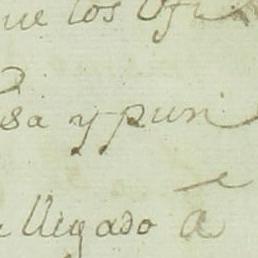 ue los Ofi
sa y pun
llegado á